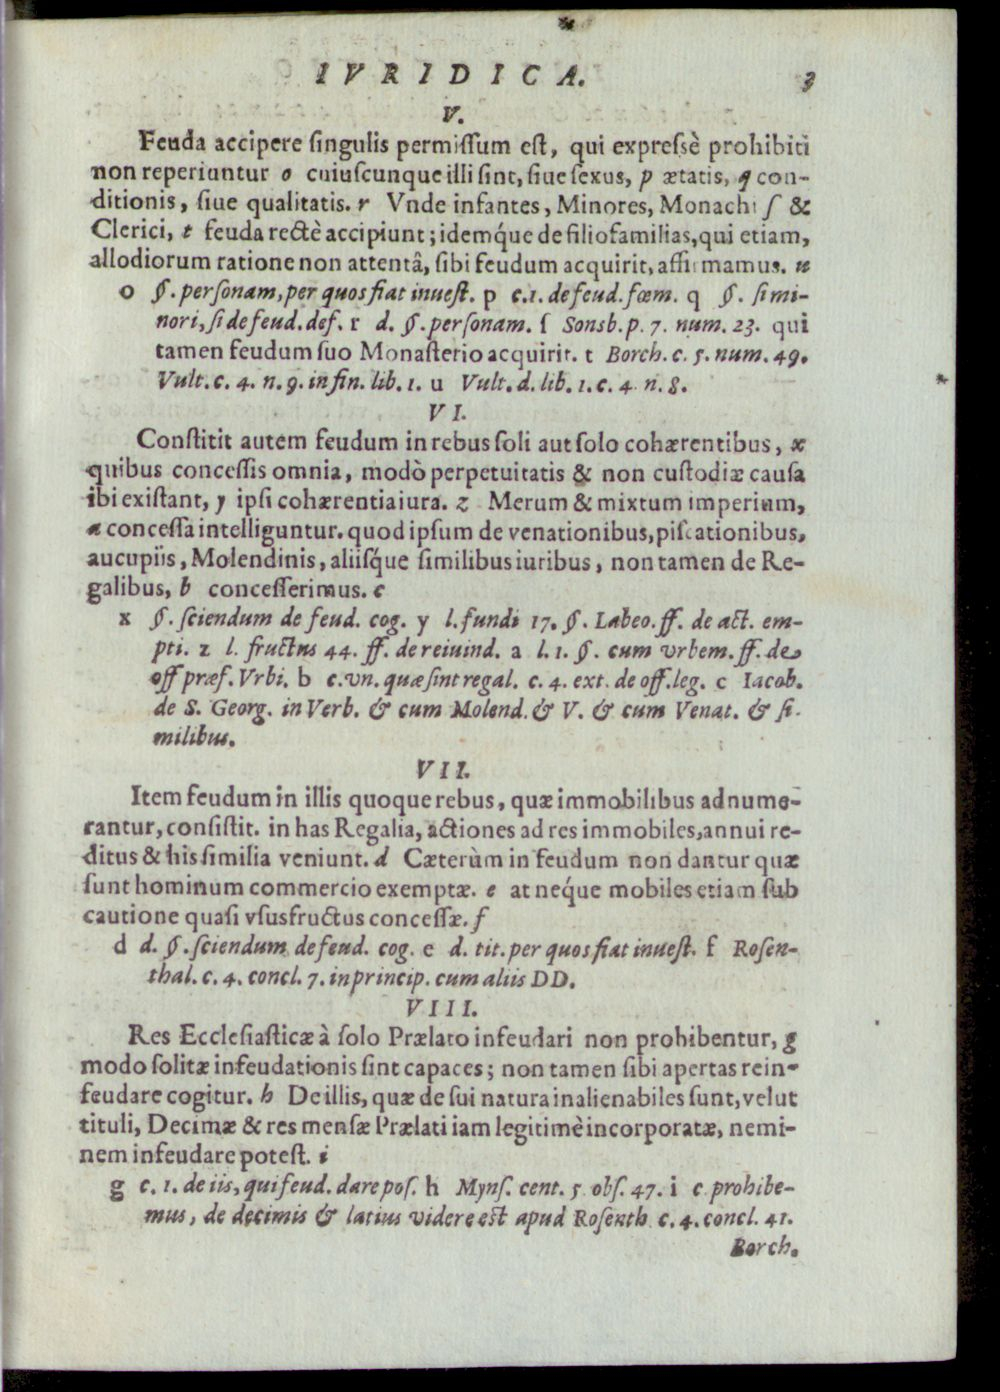 IVRIDICA. 3
V.
Feuda accipere ſingulis permiſſum eſt, qui expreſsè prohibiti
non reperiuntur o cuiuſcunque illi ſint, ſiue ſexus, p ætatis, q con-
ditionis, ſiue qualitatis. r Vnde infantes, Minores, Monachi ſ &
Clerici, t feuda rectè accipiunt; idemq́ue de filiofamilias, qui etiam,
allodiorum ratione non attentâ, ſibi feudum acquirit, affirmamus. u
o §. perſonam, per quos fiat inueſt. p c. 1. de feud. fœm. q §. ſi mi-
nori, ſi de feud. def. r d. §. perſonam. ſ Sonsb. p. 7. num. 23. qui
tamen feudum ſuo Monaſterio acquirit. t Borch. c. 5. num. 49.
Vult. c. 4. n. 9. in fin. lib. 1. u Vult. d. lib. 1. c. 4 n. 8.
VI.
Conſtitit autem feudum in rebus ſoli aut ſolo cohærentibus, x
quibus conceſſis omnia, modò perpetuitatis & non cuſtodiæ cauſa
ibi exiſtant, y ipſi cohærentia iura. z Merum & mixtum imperium,
a conceſſa intelliguntur. quod ipſum de venationibus, piſcationibus,
aucupiis, Molendinis, aliiſq́ue ſimilibus iuribus, non tamen de Re-
galibus, b conceſſerimus. c
x §. ſciendum de feud. cog. y l. fundi 17. §. Labeo. ff. de act. em-
pti. z l. fructus 44. ff. de reiuind. a l. 1. §. cum vrbem. ff. de
off præf. Vrbi. b c. vn. quæ ſint regal. c. 4. ext. de off. leg. c Iacob.
de S. Georg. in Verb. & cum Molend. & V. & cum Venat. & ſi-
milibus.
VII.
Item feudum in illis quoque rebus, quæ immobilibus adnume-
rantur, conſiſtit. in has Regalia, actiones ad res immobiles, annui re-
ditus & his ſimilia veniunt. d Cæterùm in feudum non dantur quæ
ſunt hominum commercio exemptæ. e at neq́ue mobiles etiam ſub
cautione quaſi vſusfructus conceſſæ. f
d d. §. ſciendum de feud. cog. e d. tit. per quos fiat inueſt. f Roſen-
thal. c. 4. concl. 7. in princip. cum aliis DD.
VIII.
Res Eccleſiaſticæ à ſolo Prælato infeudari non prohibentur, g
modo ſolitæ infeudationis ſint capaces; non tamen ſibi apertas rein-
feudare cogitur. h De illis, quæ de ſui natura inalienabiles ſunt, velut
tituli, Decimæ & res menſæ Prælati iam legitimè incorporatæ, nemi-
nem infeudare poteſt. i
g c. 1. de iis, qui feud. dare poſ. h Mynſ. cent. 5 obſ. 47. i c. prohibe-
mus, de decimis & latius videre est apud Roſenth. c. 4. concl. 41.
Borch.